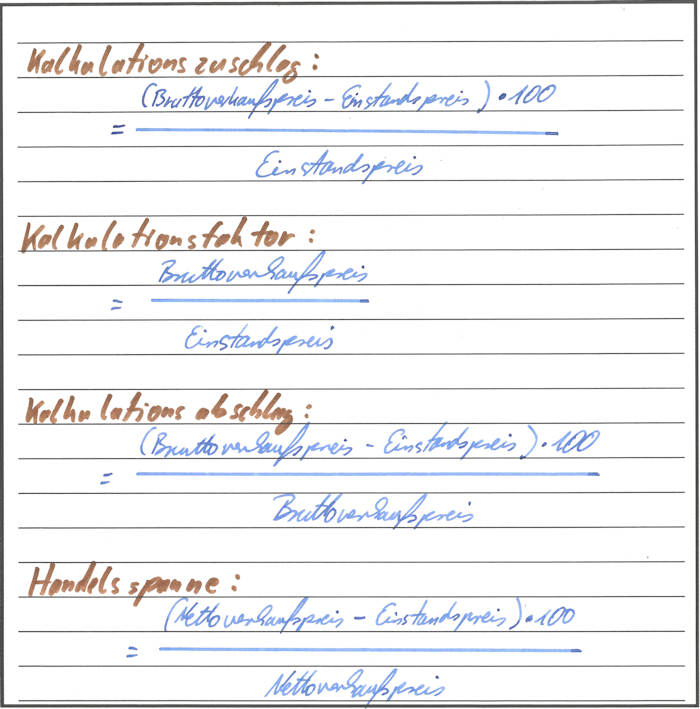 Kalkulationszuschlag:
(Bruttoverkaufspreis - Einstandspreis) • 100
=
Einstandspreis
Kalkulationsfaktor:
Bruttoverkaufspreis
=
Einstandspreis
Kalkulationsabschlag:
(Bruttoverkaufspreis - Einstandspreis) • 100
=
Bruttoverkaufspreis
Handelsspanne:
(Nettoverkaufspreis - Einstandspreis) • 100
=
Nettoverkaufspreis